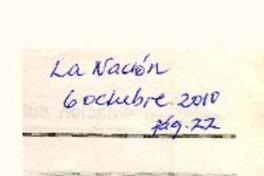 La Nación
6 octubre 2010
pág. 22